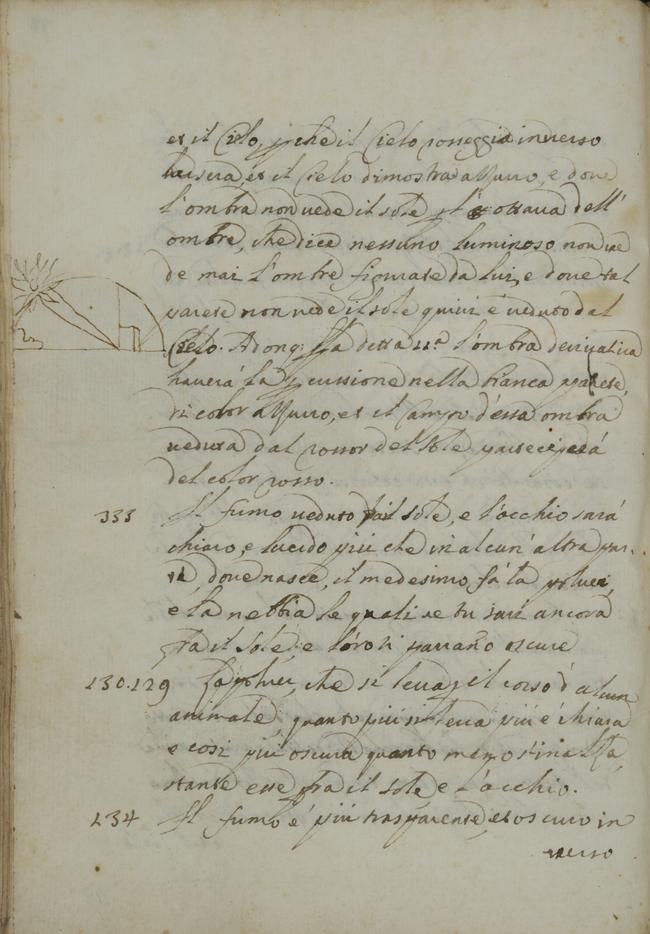 et il Cielo, p che il Cielo rosseggia inverso
la sera, et il Cielo dimostrarà azurro, e dove
l'ombra non vede il sole p l' ottava dell'
ombre, che dice nessuno luminoso non ve
de mai l'ombre figurate da lui, e dove tal
parete non vede il sole quivi è veduto dal
Cielo. Adonq: p la detta 11.a l'ombra derivativa
haverà la p cussione nella bianca parete,
di color azurro, et il campo d'essa ombra
veduta dal rossor del sole parteciperà
del color rosso.
333 Il fumo veduto fra il sole, e l'occhio sarà
chiaro, e lucido più che in alcun'altra par-
te, dove nasce, il medesimo fà la polvere
e la nebbia le quali se tu sarai ancora
fra il sole e loro ti parrano oscure
130.129 La polvere, che si leva p il corso d'alcun
animale, quanto più si leva più è chiara
e così più oscura quanto meno s'inalza,
stante essa fra il sole e l'occhio.
134 Il fumo è più trasparente, et oscuro in
verso